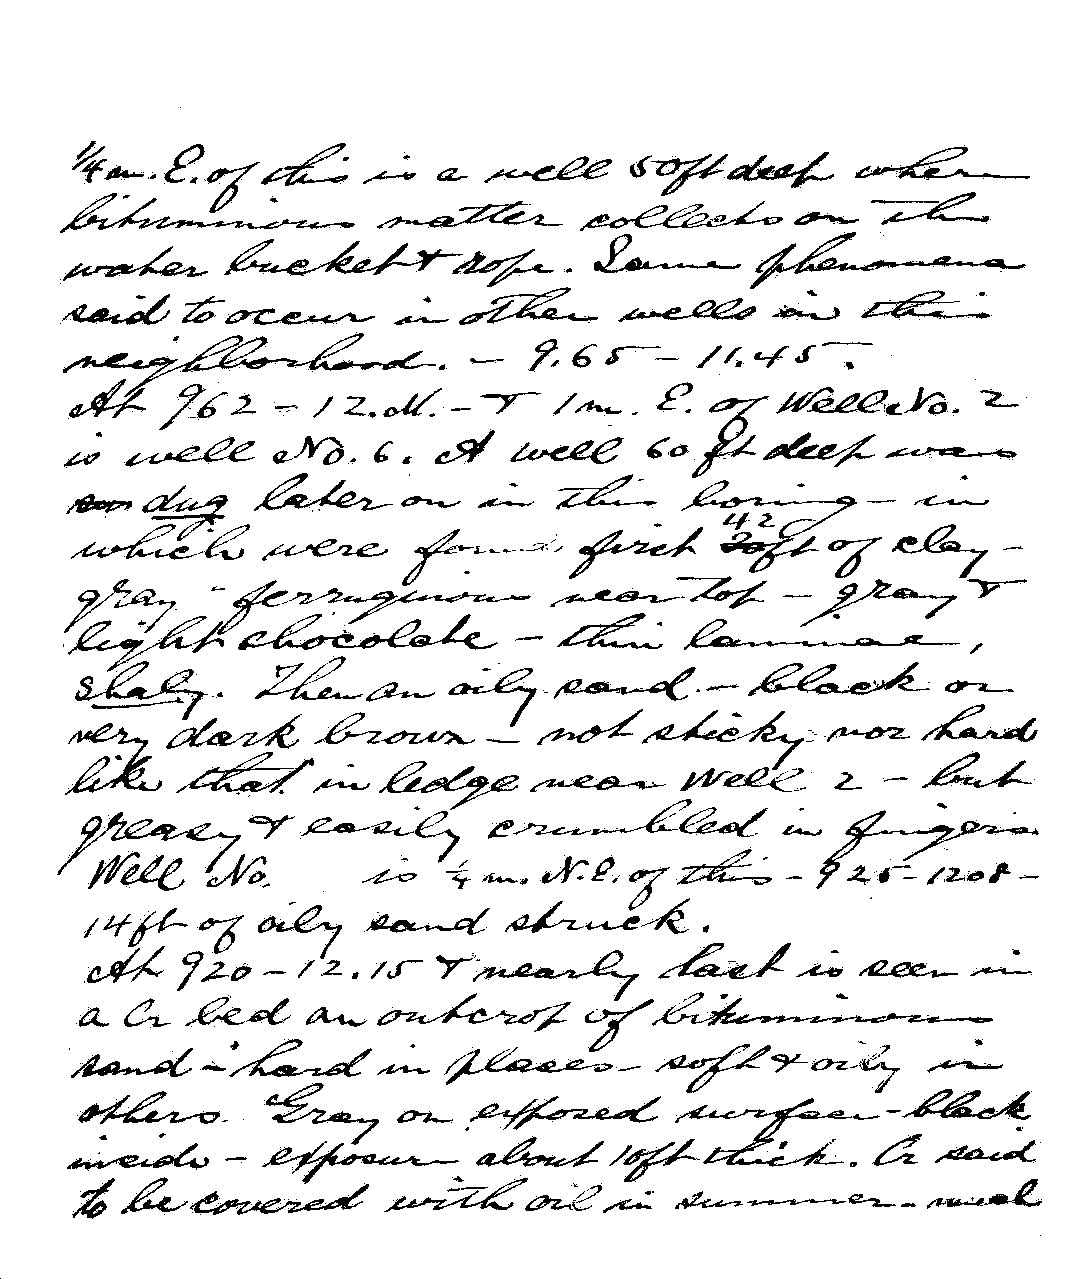 1/4 m. E. of this is a well 50ft deep where
bituminous matter collects on the
water bucket & rope. Same phenomena
said to occur in other wells in this
neighborhood. – 9.65 – 11.45.
At 962 – 12.M. – & 1 m. E. of Well No. 2
is well No. 6. A well 60 ft deep was
dug later on in this boring – in
which were found first 42 ft of clay –
gray – ferruginous near top – gray &
light chocolate – thin laminae,
shaly. Then an oily sand – black or
very dark brown – not sticky nor hard
like that in ledge near Well 2 – but
greasy & easily crumbled in fingers.
Well No. is 1/4 m. N.E. of this – 925 – 1208 –
14ft of oily sand struck.
At 920 – 12.15 & nearly last is seen in
a Cr bed an outcrop of bituminous
sand – hard in places – soft & oily in
others. Gray on exposed surface – black
inside – exposure about 10ft thick. Cr said
to be covered with oil in summer – much